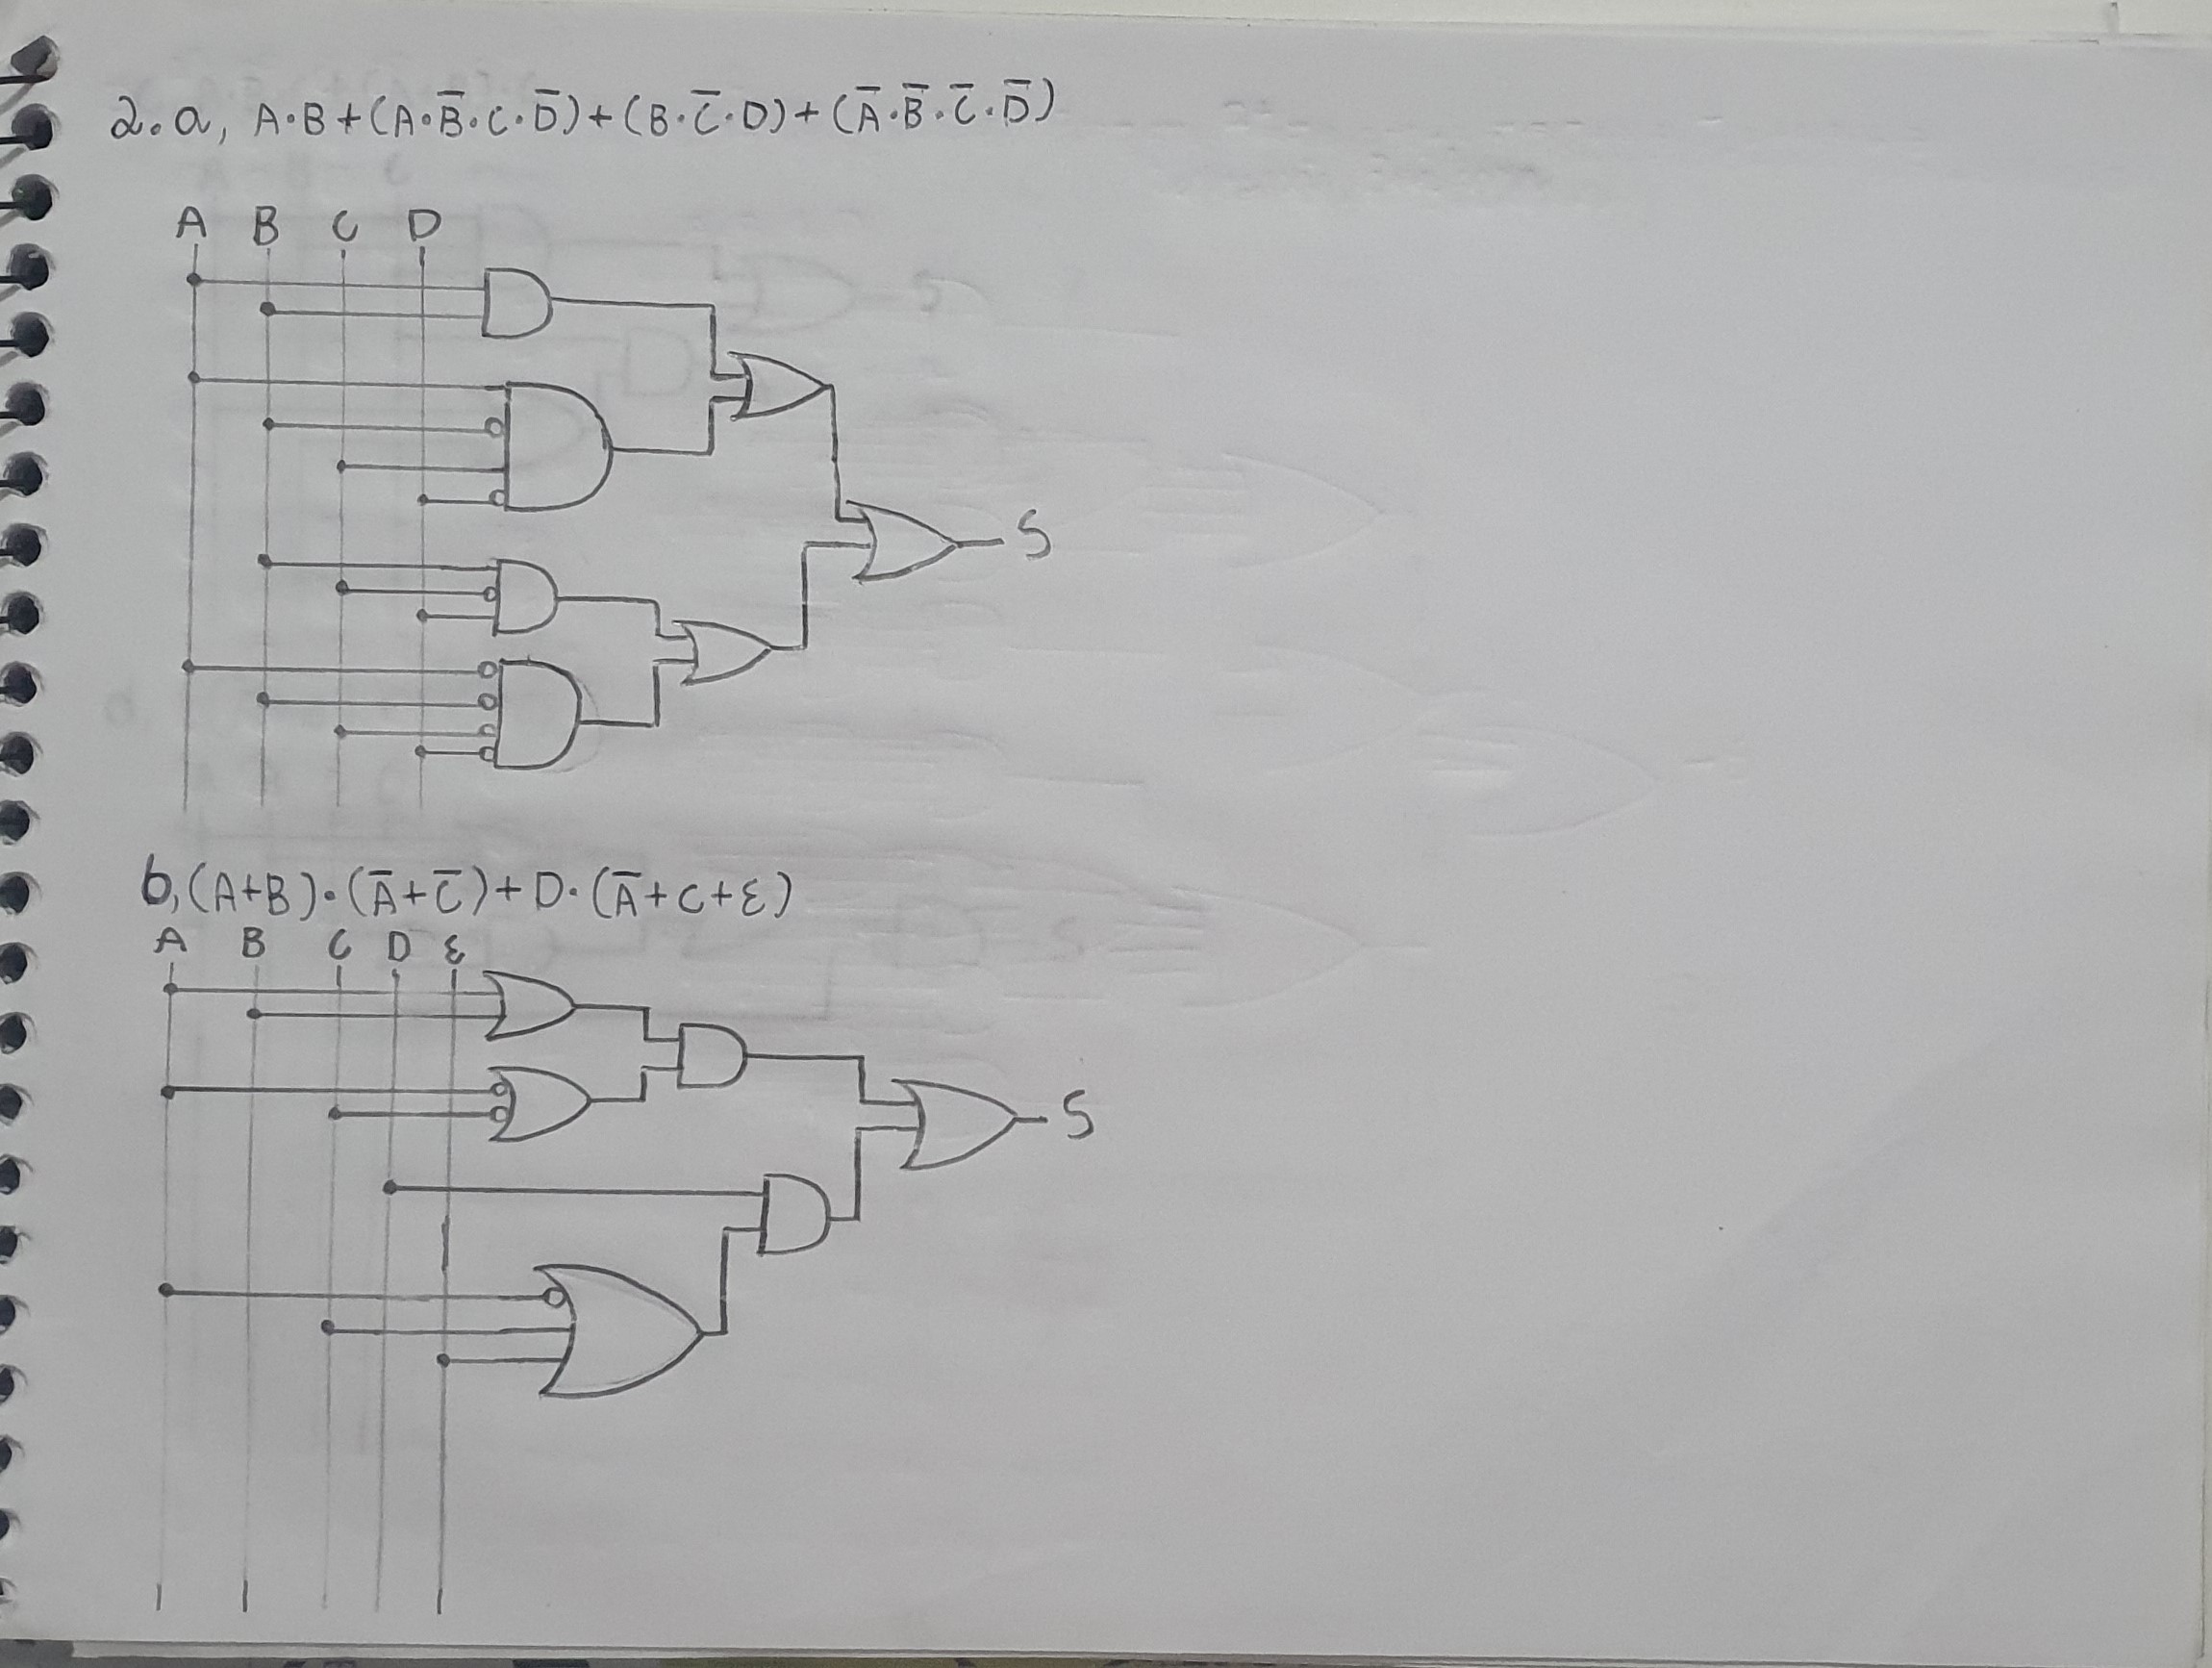 2.a, A·B+(A·B̅·C·D̅)+(B·C̅·D)+(A̅·B̅·C̅·D̅)
A B C D
S
b,(A+B)·(A̅+C̅)+D·(A̅+C+Ɛ)
A B C D Ɛ
S